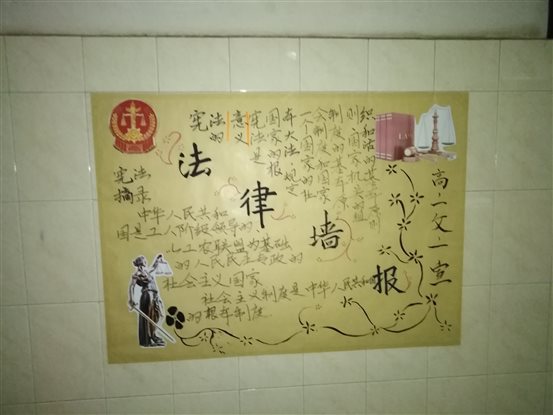 宪法
的
意义
宪法是
国家的根
本大法 规定
一个国家的社
会制度和国家
制度的基本原
则国家机关的组
织和活的基本原则
法律墙报
高一文一宣
宪法
摘录
中华人民共和
国是工人阶级领导的
以工农联盟为基础
的人民民主专政的
社会主义国家
社会主义制度是中华人民共和国
的根本制度